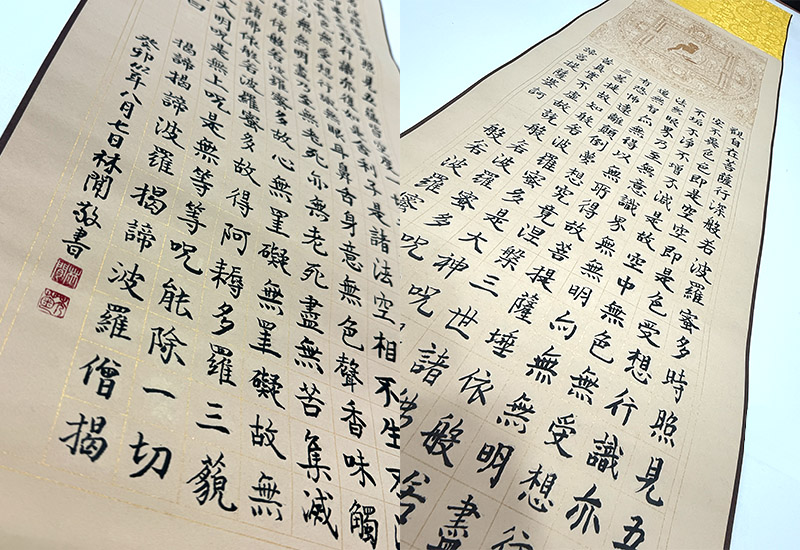 照見五蘊皆空度
復如是舍利子是諸法空相不生不
無受想行識無眼耳鼻舌身意無色聲香味觸
無無明盡乃至無老死亦無老死盡無苦集滅
依般若波羅蜜多故心無罣礙無罣礙故無
諸佛依般若波羅蜜多故得阿耨多羅三藐
大明呪是無上呪是無等等呪能除一切
揭諦揭諦波羅揭諦波羅僧揭
癸卯年八月七日林聞敬書
觀自在菩薩行深般若波羅蜜多時照見五
空不異色色即是空空即是色受想行識亦
不垢不淨不增不減是故空中無色無受想行
法無眼界乃至無意識界無無明亦無無明盡
道無智亦無得以無所得故菩提薩埵依般若
有恐怖遠離顛倒夢想究竟涅槃三世諸
菩提故知般若波羅蜜多是大神呪
苦真實不虛故說般若波羅蜜多呪
諦菩提薩婆訶